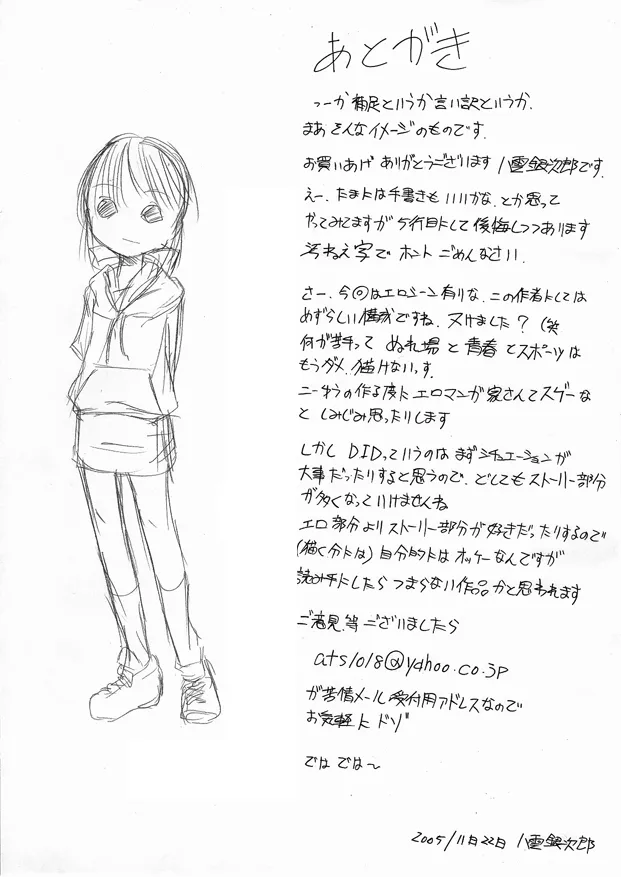 あとがき
つーか補足というか言い訳というか.
まあ そんなイメージのものです.
お買いあげ ありがとうございます 八雲銀次郎です.
えー. たまには手書きも いいかな. とか思って
やってみてますが 5行目にして 後悔しつつあります
汚ねえ字で ホント ごめんなさい.
さー. 今回はエロシーン有りな. この作者としては
めずらしい構成ですね. 又けました? (笑
何が苦手って ぬれ場 と 青春 とスポーツは
もうダメ. 描けないっす.
こーゆうの作る度に エロマンガ家さんてスゲーな
と しみじみ思ったりします
しかし DIDっていうのは まずシチュエーションが
大事だったりすると思うので. どしてもストーリー部分
が多くなって いけませんね
エロ部分よりストーリー部分が好きだったりするので
(描く分には) 自分的には オッケーなんですが
読み手にしたら つまらない作品かと思われます
ご意見.等 ございましたら
ats1018@yahoo.co.jp
が苦情メール受付用アドレスなので
お気軽に ドゾ
では では〜
2005/11月22日 八雲銀次郎